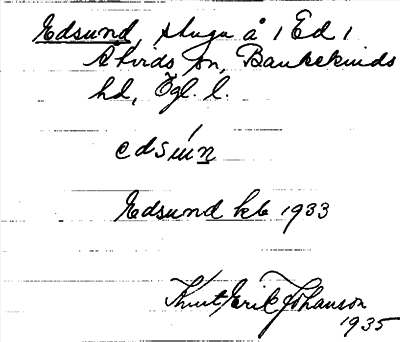 Edsund, stuga å 1 Ed 1
Åtvids sn, Bankekinds
hd, Ögl. l.
edsún
Edsund kb 1933
Knut Erik Johanson
1935